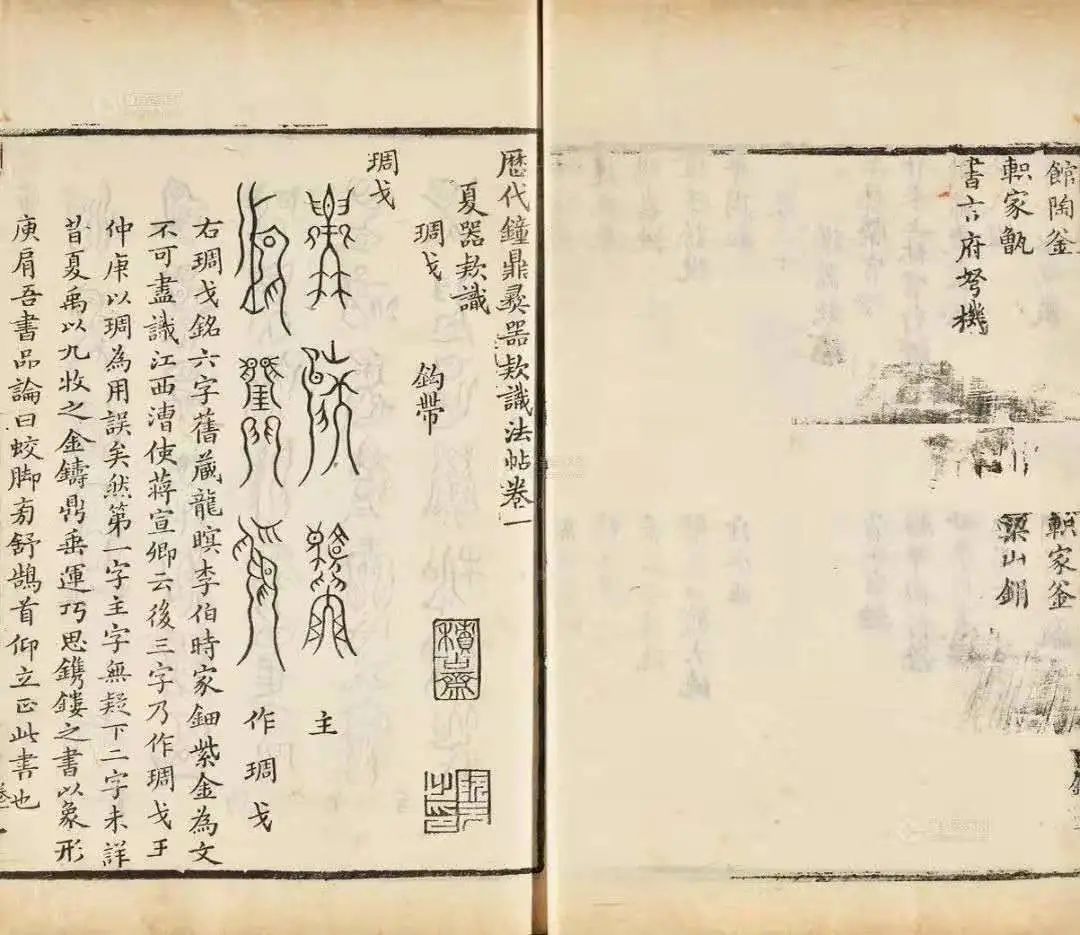 館陶釜
軹家釜
軹家甑
梁山鋗
書言府弩機
歷代鐘鼎彝器款識法帖卷一
夏器款識
琱戈
鈎帶
積古齋
琱戈
主
作琱戈
右琱戈銘六字舊藏龍瞑李伯時家鈿紫金為文
不可盡識江西漕使蔣宣卿云後三字乃作琱戈王
仲庚以琱為用誤矣然第一字主字無疑下二字未詳
昔夏禹以九牧之金鑄鼎垂運巧思鐫鏤之書以象形
庾肩吾書品論曰蛟脚旁舒鵠首仰立正此書也